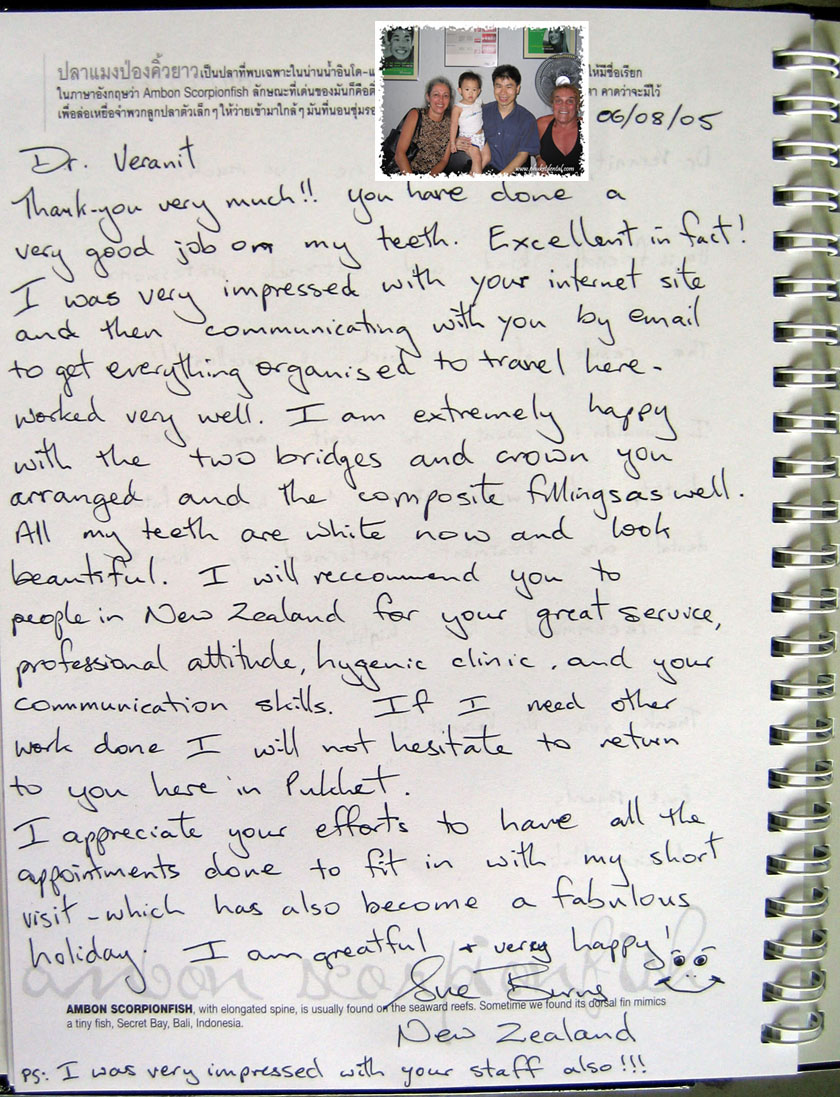 ปลาแมงป่องคิ้วยาวเป็นปลาที่พบเฉพาะในน่านน้ำอินโด-แ ให้มีชื่อเรียก
ในภาษาอังกฤษว่า Ambon Scorpionfish ลักษณะที่เด่นของมันก็คือติ่ง า คาดว่าจะมีไว้
เพื่อล่อเหยื่อจำพวกลูกปลาตัวเล็กๆ ให้ว่ายเข้ามาใกล้ๆ มันที่นอนซุ่มรอ
www.phuketdental.com
06/08/05
Dr. Veranit
Thank-you very much!! you have done a
very good job on my teeth. Excellent in fact!
I was very impressed with your internet site
and then communicating with you by email
to get everything organised to travel here -
worked very well. I am extremely happy
with the two bridges and crown you
arranged and the composite fillings as well.
All my teeth are white now and look
beautiful. I will reccommend you to
people in New Zealand for your great service,
professional attitude, hygenic clinic, and your
communication skills. If I need other
work done I will not hesitate to return
to you here in Pukhet.
I appreciate your efforts to have all the
appointments done to fit in with my short
visit - which has also become a fabulous
holiday. I am greatful + very happy!
Sue Burns
AMBON SCORPIONFISH, with elongated spine, is usually found on the seaward reefs. Sometime we found its dorsal fin mimics
a tiny fish, Secret Bay, Bali, Indonesia.
New Zealand
PS: I was very impressed with your staff also!!!